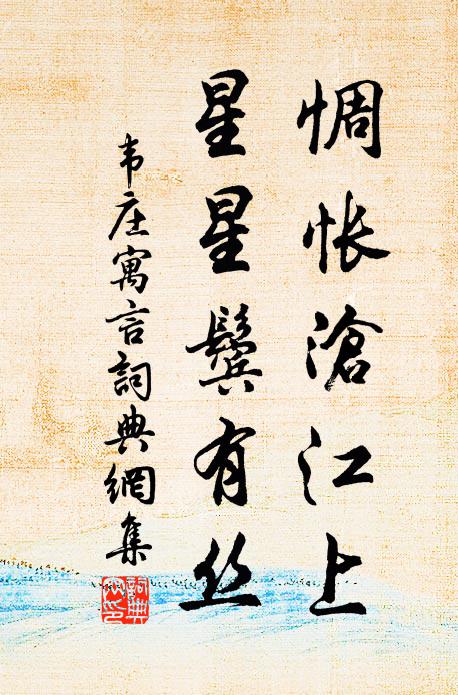 惆怅滄江上
星星鬓有丝
韦庄寓言詞典網集